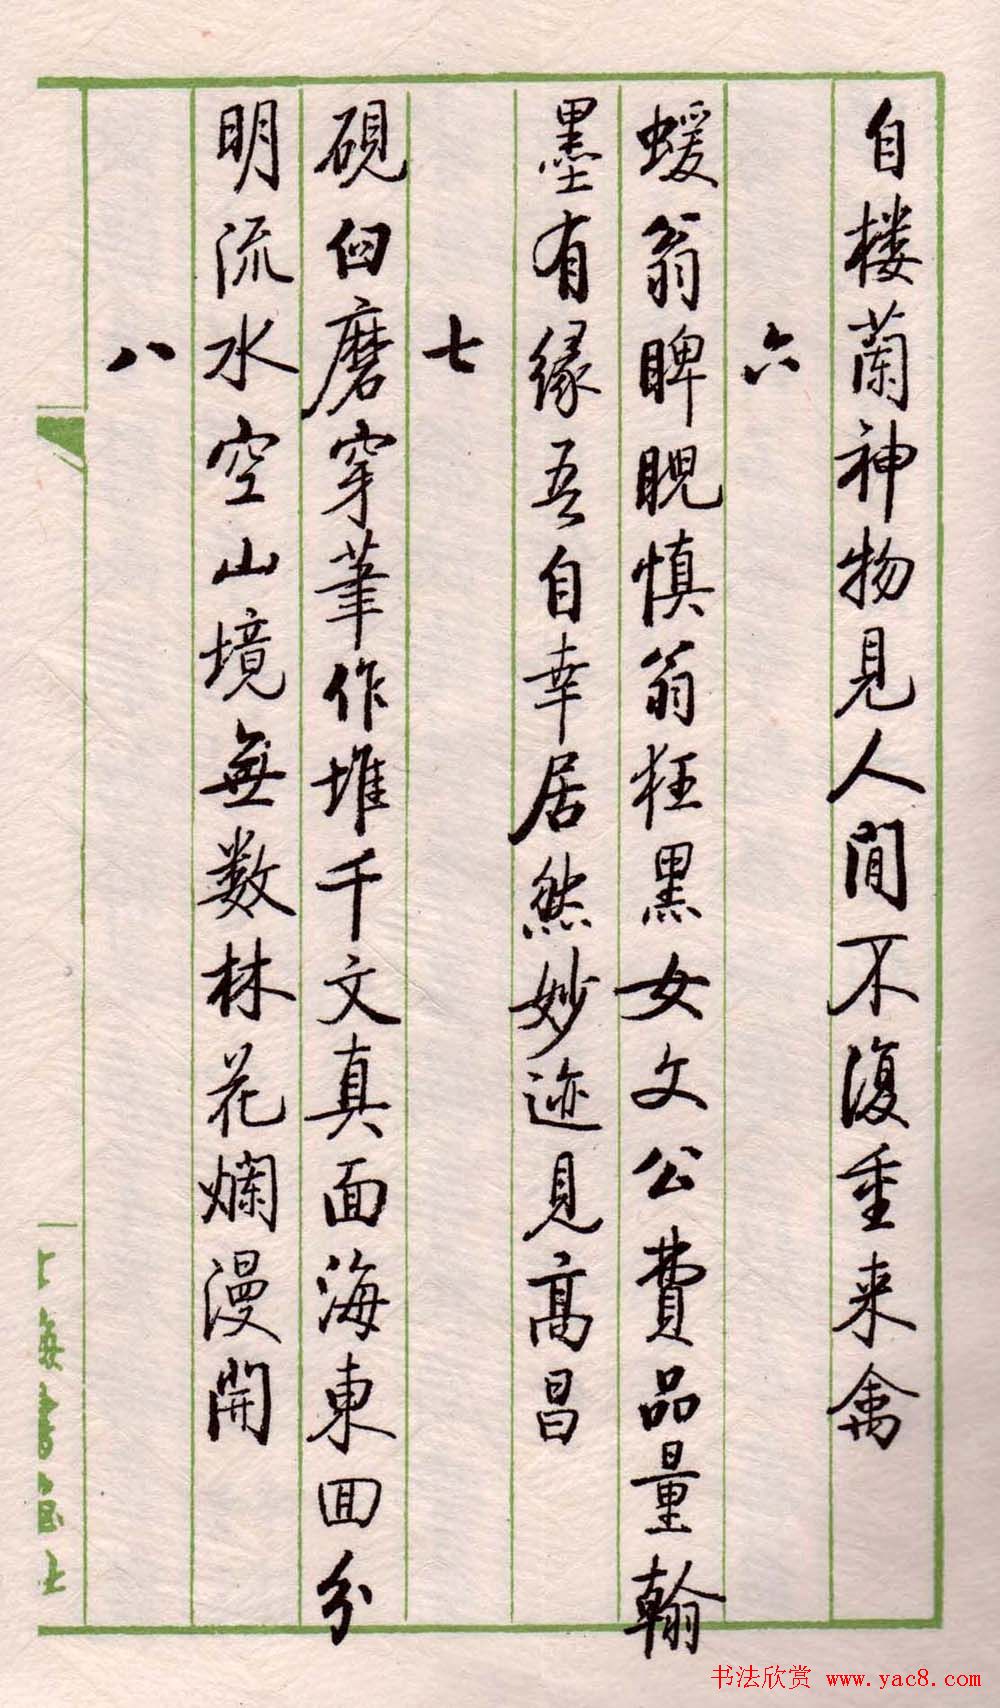 自楼蘭神物見人間不復重来禽
六
蝯翁睥睨慎翁狂黑女文公費品量翰
墨有緣吾自幸居然妙迹見高昌
七
硯臼磨穿筆作堆千文真面海東回分
明流水空山境無数林花爛漫開
八
书法欣赏 www.yac8.com